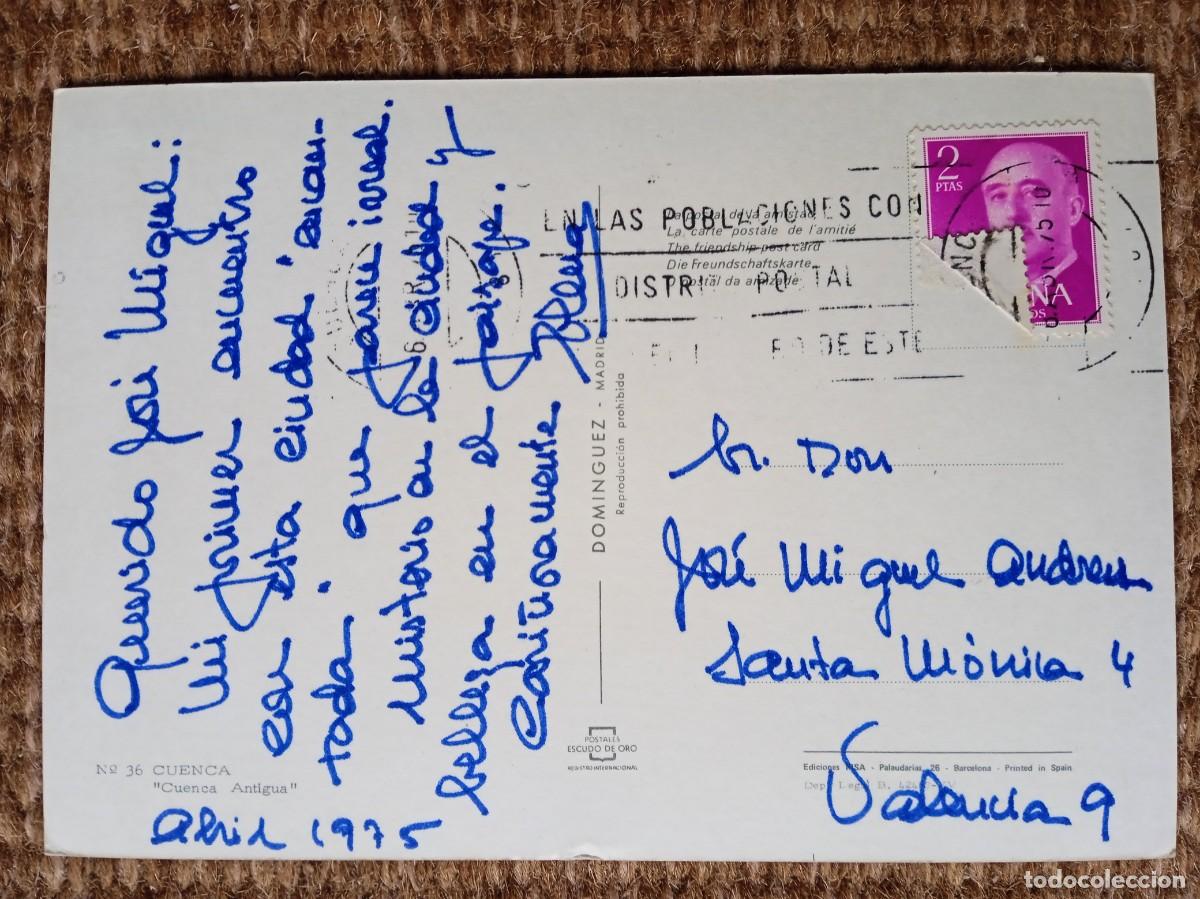 Querido José Miguel:
Mi primer encuentro
con esta ciudad "encan-
tada" que parece irreal.
Misterio en la ciudad y
belleza en el paisaje.
Cariñosamente
Elena
Nº 36 CUENCA
"Cuenca Antigua"
Abril 1975
EN LAS POBLACIONES CON
DISTRI POSTAL
DE ESTE
La postal de la amistad
La carte postale de l'amitié
The friendship post card
Die Freundschaftskarte
O postal da amizade
2
PTAS
DOMINGUEZ - MADRID
Reproducción prohibida
POSTALES
ESCUDO DE ORO
REGISTRO INTERNACIONAL
Sr. Don
José Miguel Andreu
Santa Mónica 4
Valencia 9
Ediciones FISA - Palaudarias, 26 - Barcelona - Printed in Spain
Dep. Legal B.
todocoleccion